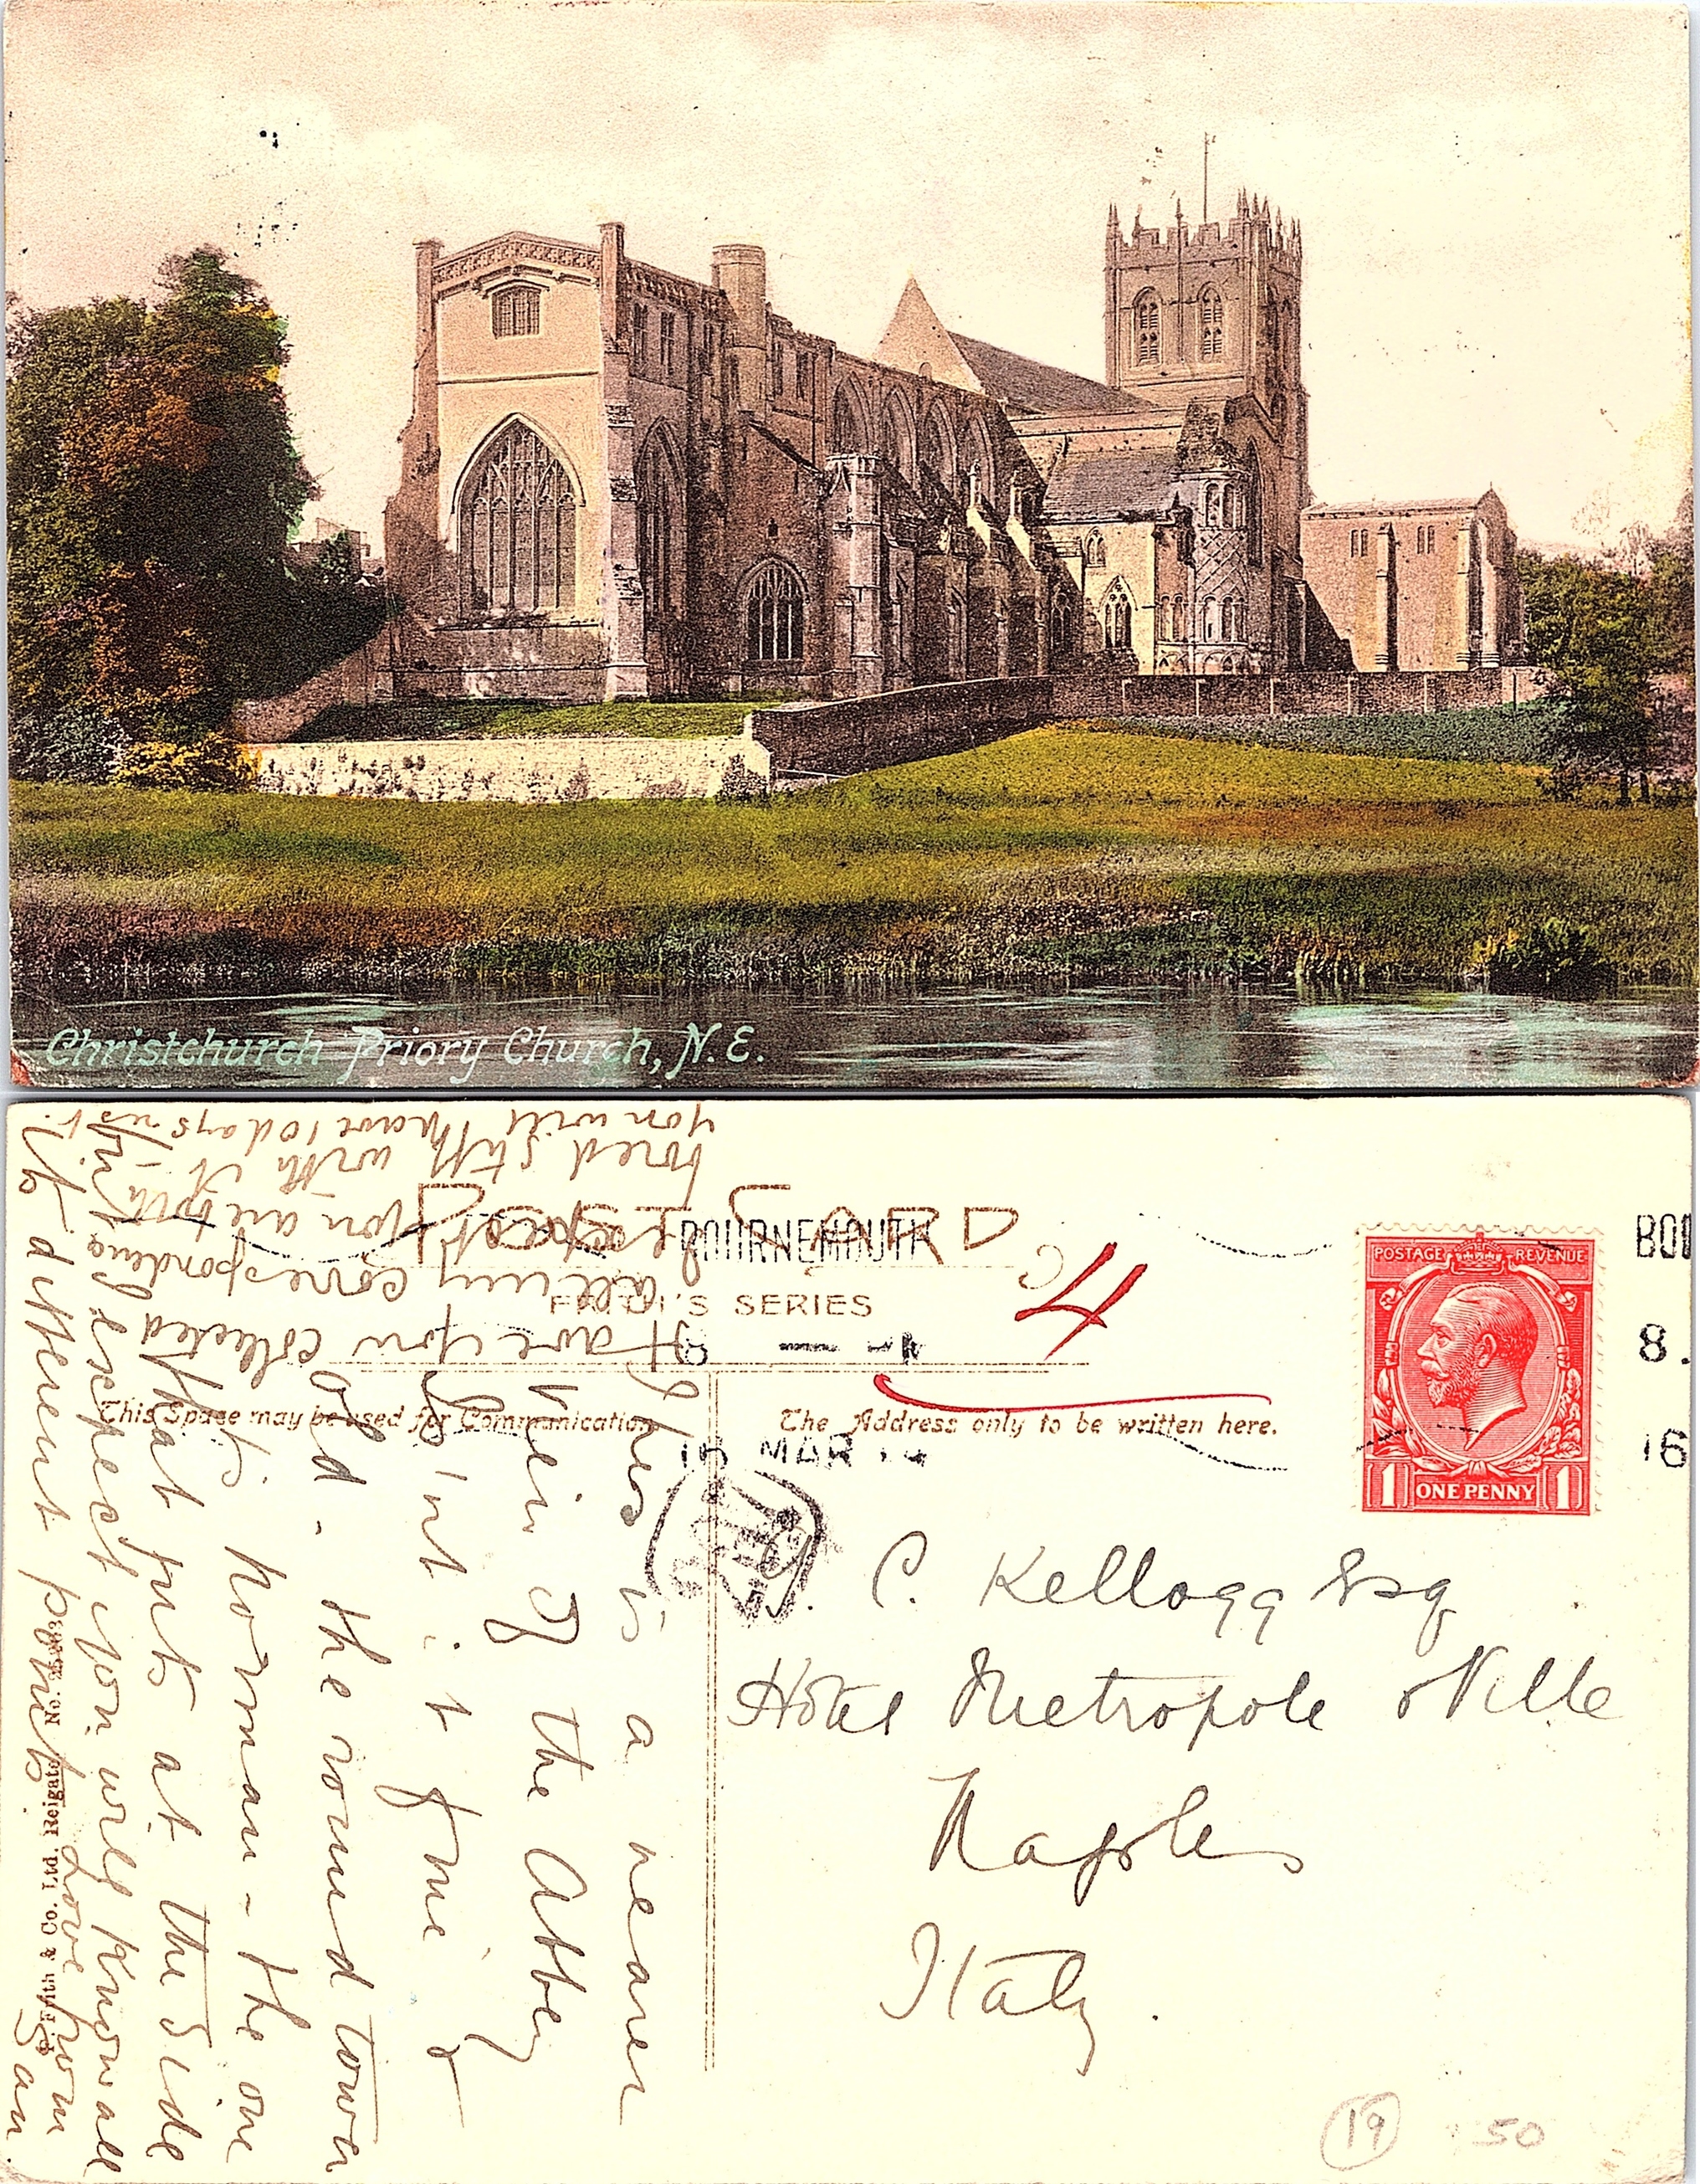 Christchurch Priory Church, N.E.
POST CARD
FRITH'S SERIES
This Space may be used for Communication.
The Address only to be written here.
BOURNEMOUTH
8
16 MAR 14
BOU
8.
16
4
POSTAGE REVENUE
1 ONE PENNY 1
C. Kellogg Esq
Hotel Metropole & Ville
Naples
Italy.
This is a nearer
view of the Abbey
Isn't it fine &
old - the round tower
is norman - the one
that juts at the side
I expect you will know all
its different points
Love from
Sam
Have you collected
all my corresponding
I expect you are
bored stiff with it -
you will have 10 days rest.
F. Frith & Co. Ltd. Reigate. No.
19
50